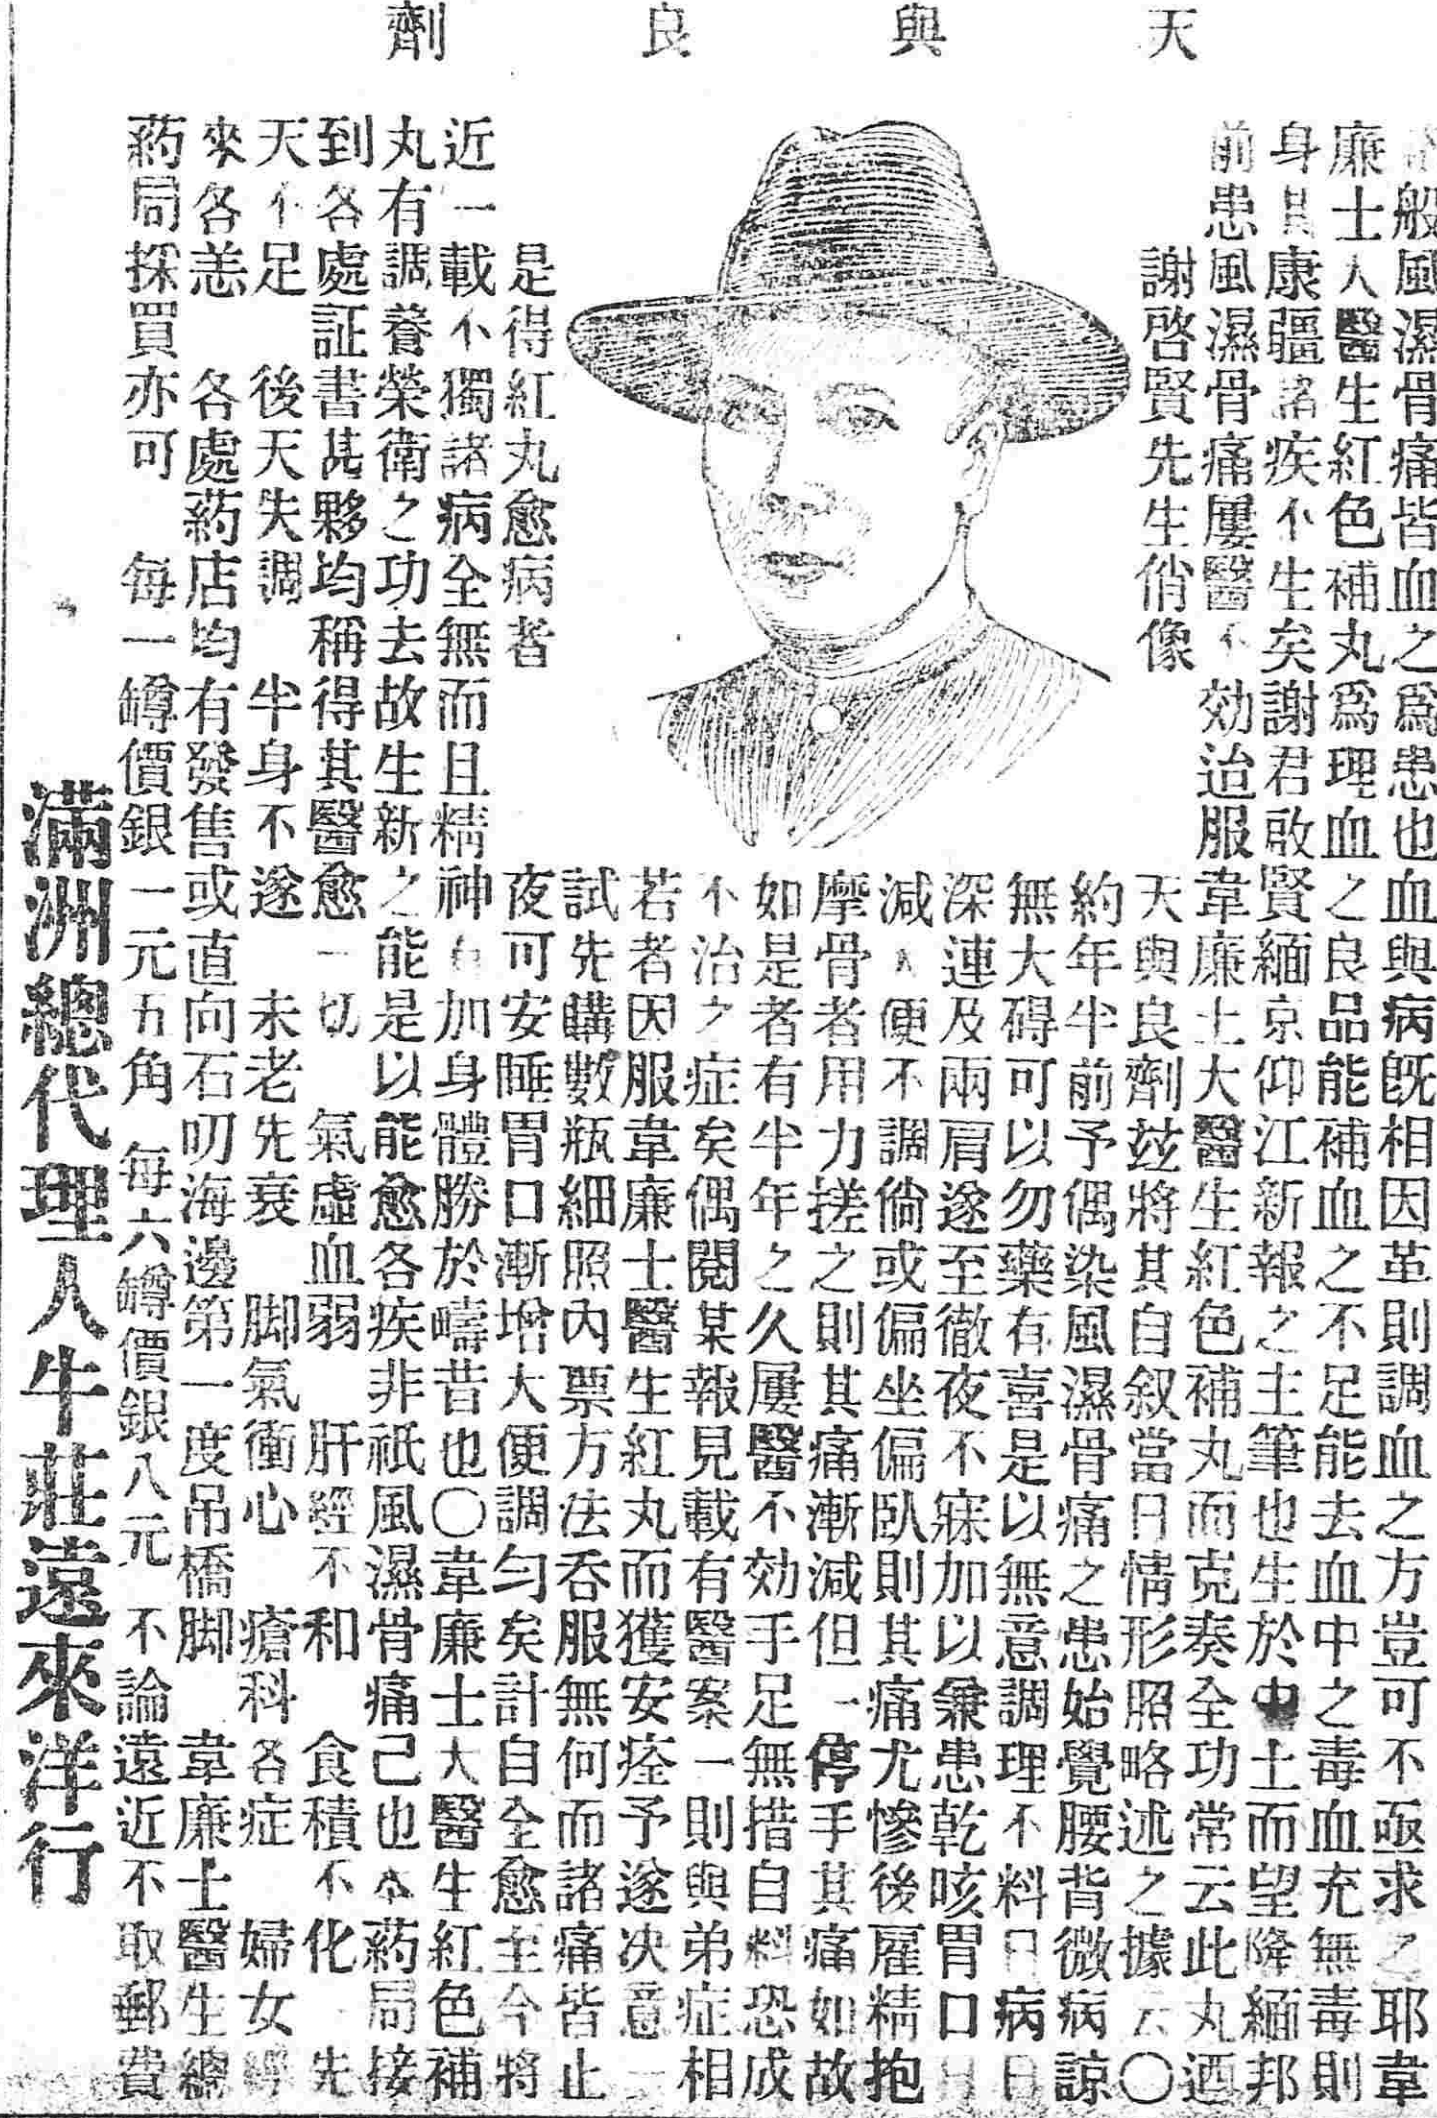 天與良劑
般風濕骨痛皆血之爲患也血與病旣相因革則調血之方豈可不亟求之耶韋
廉士大醫生紅色補丸爲理血之良品能補血之不足能去血中之毒血充無毒則
身其康疆諸疾不生矣謝君啟賢緬京仰江新報之主筆也生於中土而望降緬邦
前患風濕骨痛屢醫不効迨服韋廉士大醫生紅色補丸而克奏全功常云此丸迺
謝啓賢先生俏像
天與良劑玆將其自叙當日情形照略述之據云〇
約年半前予偶染風濕骨痛之患始覺腰背微病諒
無大碍可以勿藥有喜是以無意調理不料日病日
深連及兩肩遂至徹夜不寐加以兼患乾咳胃口日
減大便不調倘或偏坐偏臥則其痛尤慘後雇精抱
摩骨者用力搓之則其痛漸減但一停手其痛如故
如是者有半年之久屢醫不効手足無措自料恐成
不治之症矣偶閱某報見載有醫案一則與弟症相
若者因服韋廉士醫生紅丸而獲安痊予遂决意一
試先購數瓶細照內票方法呑服無何而諸痛皆止
是得紅丸愈病者
夜可安睡胃口漸增大便調勻矣計自全愈至今將
近一載不獨諸病全無而且精神有加身體勝於疇昔也〇韋廉士大醫生紅色補
丸有調養榮衛之功去故生新之能是以能愈各疾非祇風濕骨痛己也本葯局接
到各處証書甚夥均稱得其醫愈一切 氣虛血弱 肝經不和 食積不化 先
天不足 後天失調 半身不遂 未老先衰 脚氣衝心 瘡科各症 婦女經
來各恙 各處葯店均有發售或直向石叻海邊第一度吊橋脚 韋廉士醫生總
葯局採買亦可 每一罇價銀一元五角 每六罇價銀八元 不論遠近不取郵費
滿洲總代理人牛莊遠來洋行